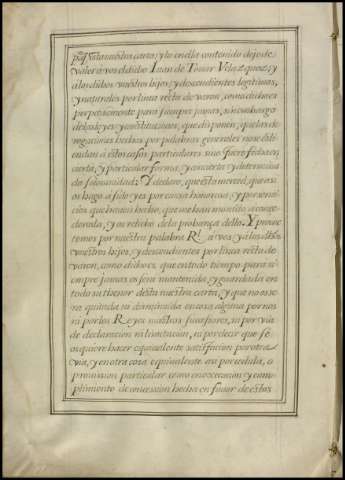 nuestra carta, y lo en ella contenido dexe de
valer a vos el dicho Iuan de Touar Velazquez, y
a los dichos vuestros hijos, y descendientes legitimos,
y naturales por linea recta de varon, como dicho es
perpetuamente para siempre jamas, sin embargo
de las leyes y constituciones, que disponen, que las de-
rogaciones hechas por palabras generales no se es-
tiendan a estos casos particulares sino fuere fecha en
carta, y particular forma, y con cierta y determinada
solemnidad: Y declaro, que esta merced, que a vos
os hago a sido y es por causa honerosa, y por servi-
cios que haveis hecho, que me han movido a conce-
derosla, y os relievo de la probança della. Y prome-
temos por nuestra palabra Rl. a vos y a los dhos
vuestros hijos, y descendientes por linea recta de
varon, como dicho es, que en todo tiempo para si-
empre jamas os sera mantenida y guardada en
todo su thenor desta nuestra carta, y que no os se-
ra quitada ni disminuida en cosa alguna por nos
ni por los Reyes nuestros sucessores, ni por via
de declaracion ni limitacion, ni por decir que se
os quiere hacer equivalente satisfacion por otra
via, y en otra cosa equivalente ora por cedula, o
provission particular como en revocacion y com-
plimiento de concession hecha en favor de estos